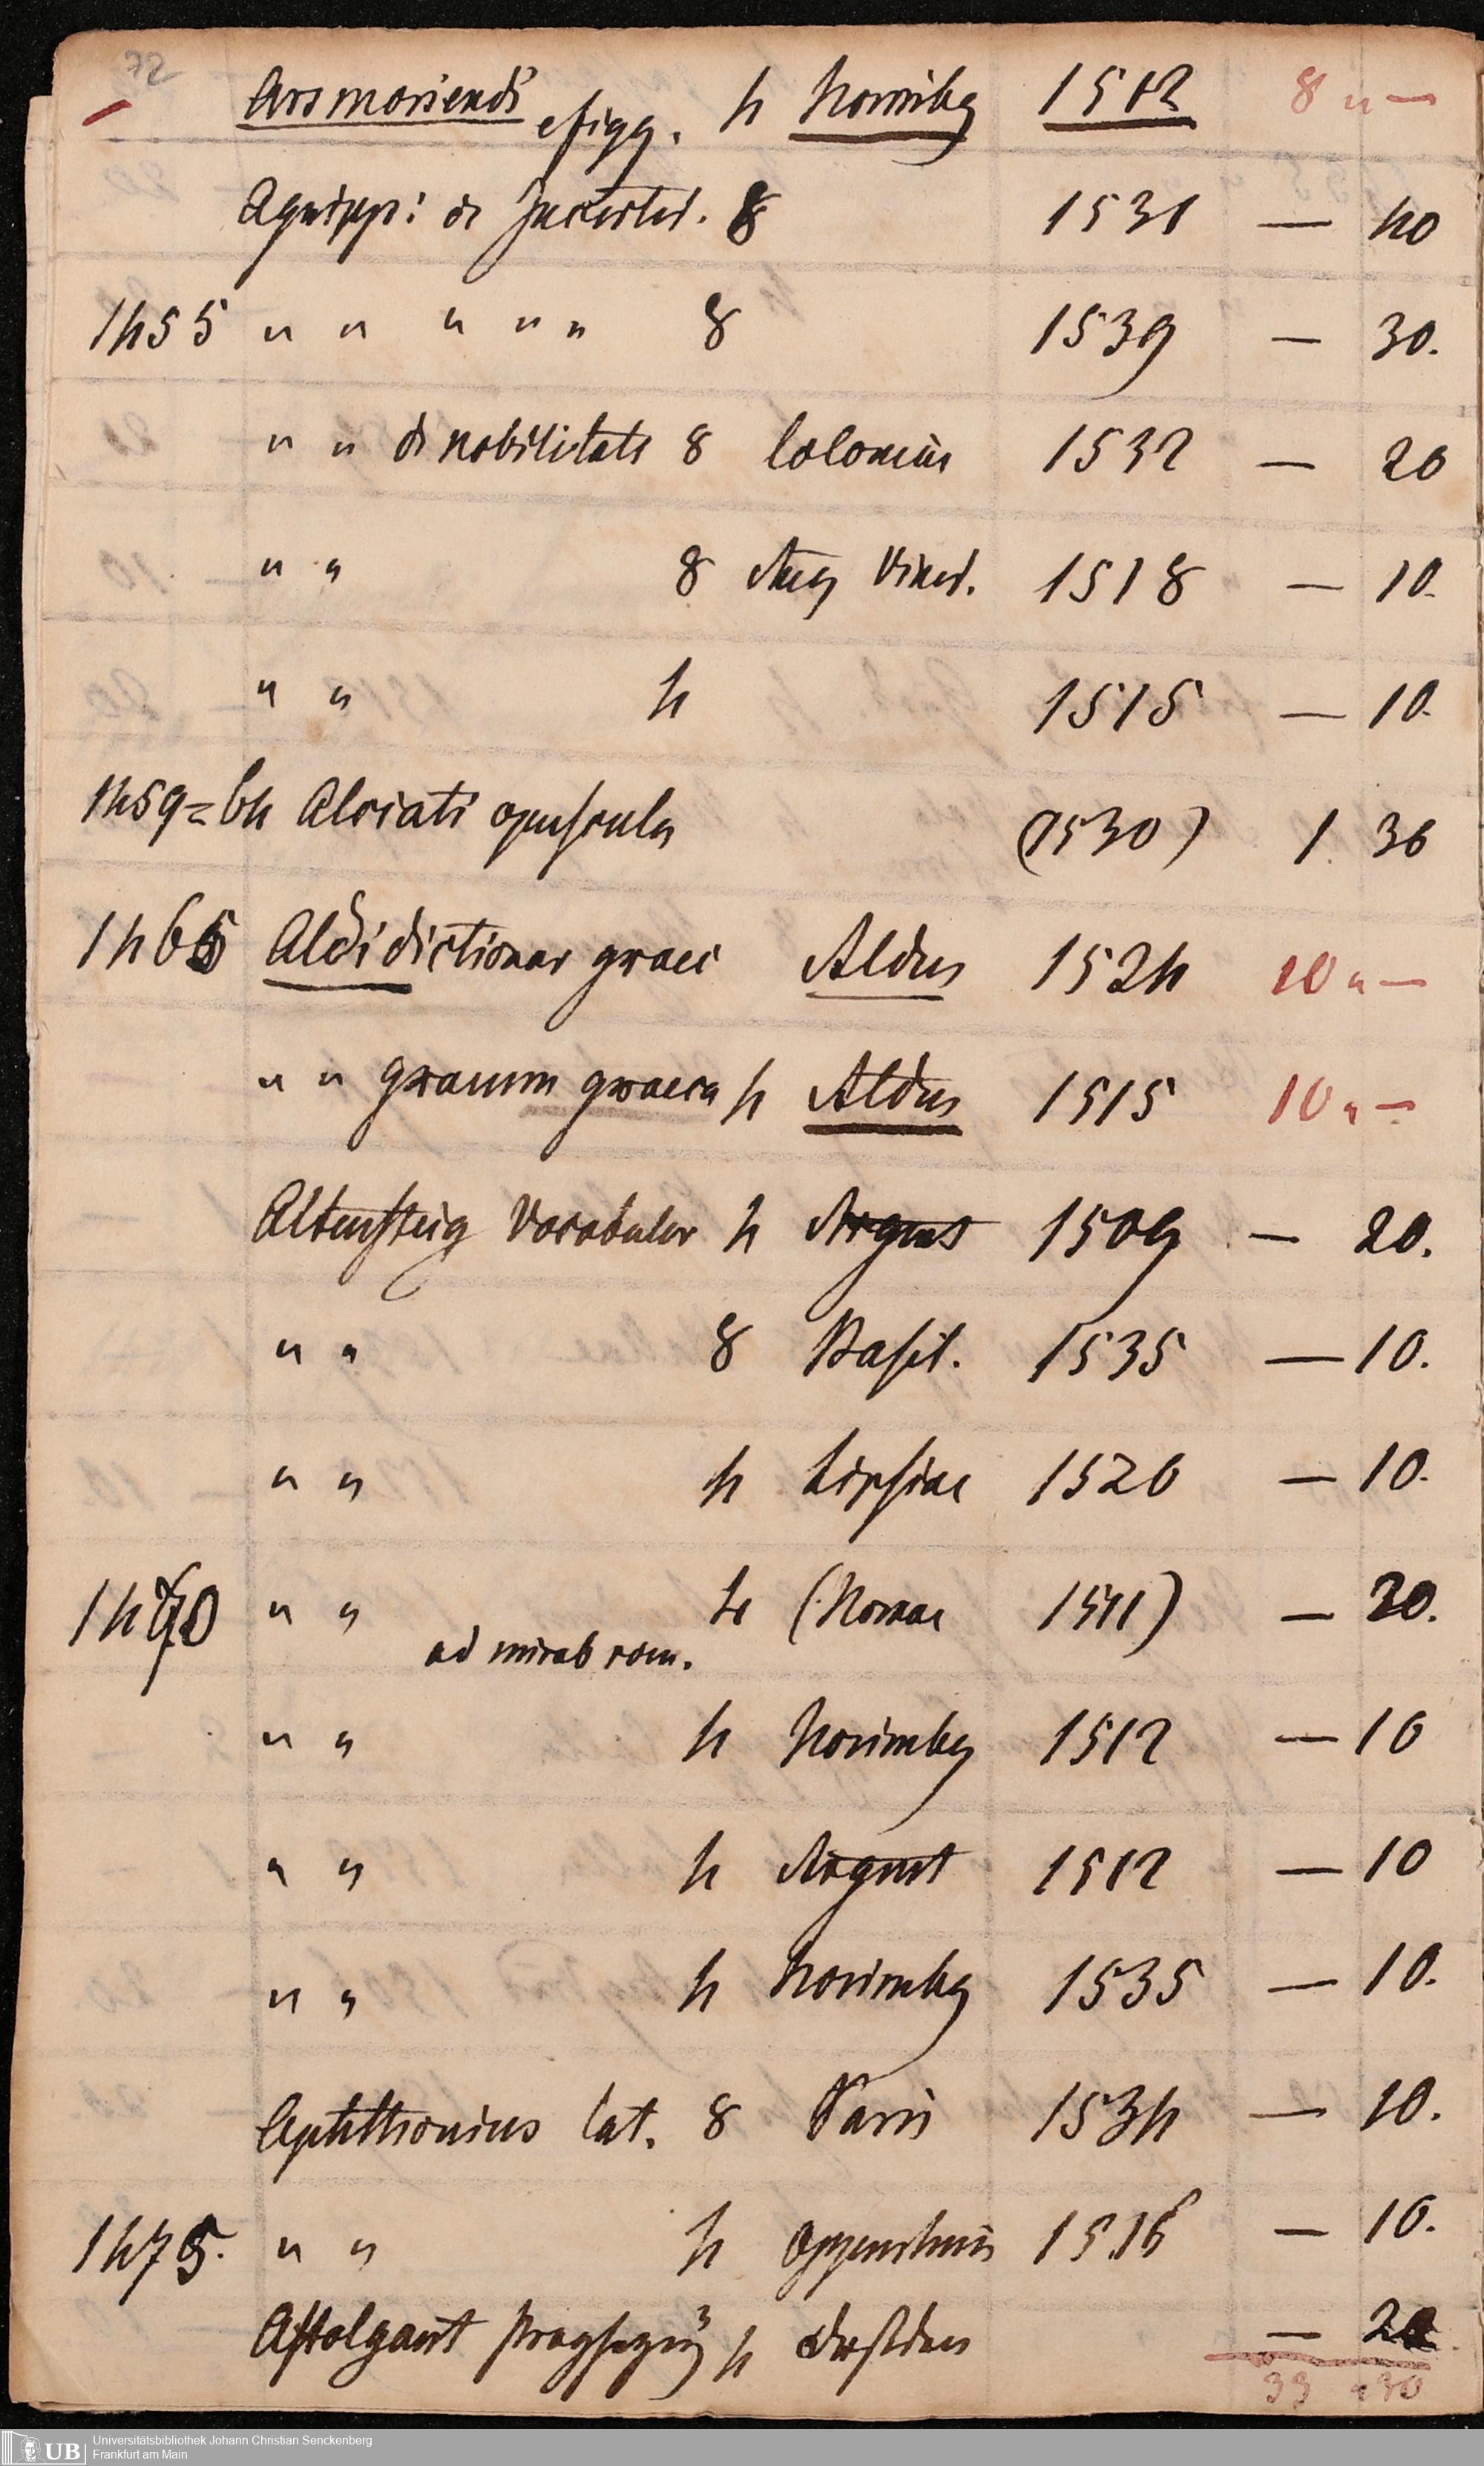 72
Ars moriendi c figg. 4 Norimbg 1512 8 " —
Agripp: de incertid. 8 1531 — 40
1455 " " " " " 8 1539 — 30.
" " de nobilitate 8 Coloniae 1532 — 20
" " 8 Aug Vind. 1518 — 10.
" " 4 1515 — 10.
1459=64 Alciati opuscula (1530) 1. 36
1465 Aldi dictionar graec Aldus 1524 10 " —
" " gramm graeca 4 Aldus 1515 10 " —
Altensteig Vocabular 4 Argent 1509 — 20.
" " 8 Basil. 1535 — 10.
" " 4 Lipsiae 1520 — 10.
1470 " " 4 (Romae 1511) — 20.
ad mirab rom.
" " 4 Norimbg 1512 — 10
" " 4 Argent 1512 — 10
" " 4 Norimbg 1535 — 10.
lat. 8 Paris 1534 — 10.
1475. " " 4 Oppenheim 1516 — 10.
4 Dresden — 20.
39 " 30
Universitätsbibliothek Johann Christian Senckenberg
UB
Frankfurt am Main